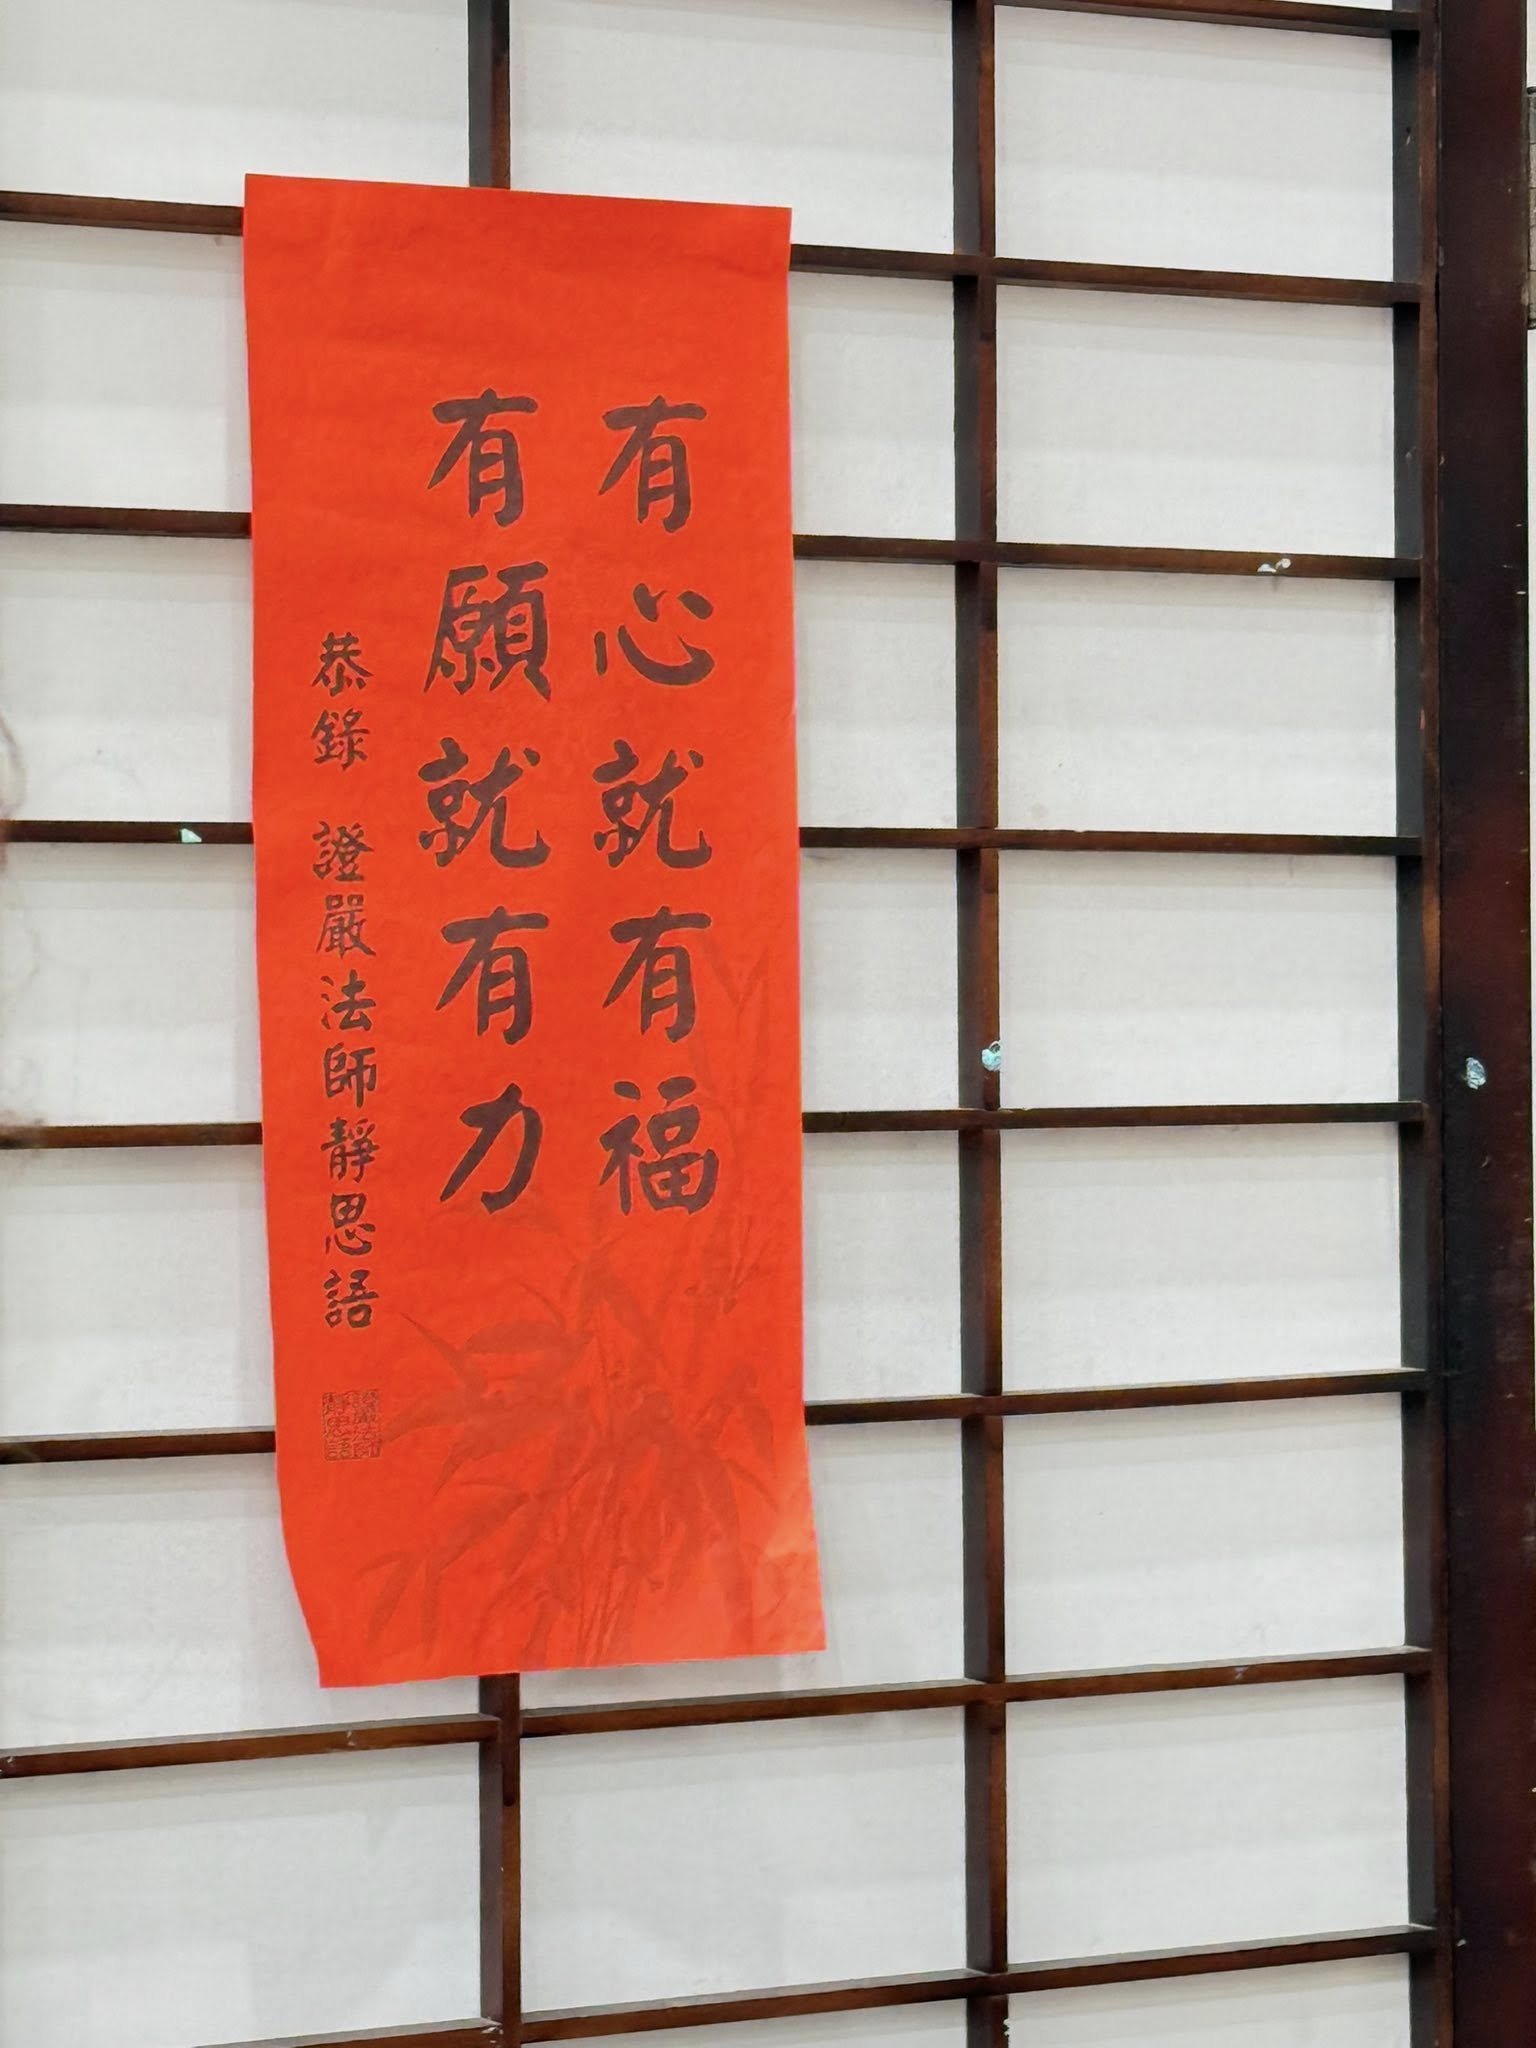 有心就有福
有願就有力
恭錄 證嚴法師靜思語
證嚴法師
靜思語